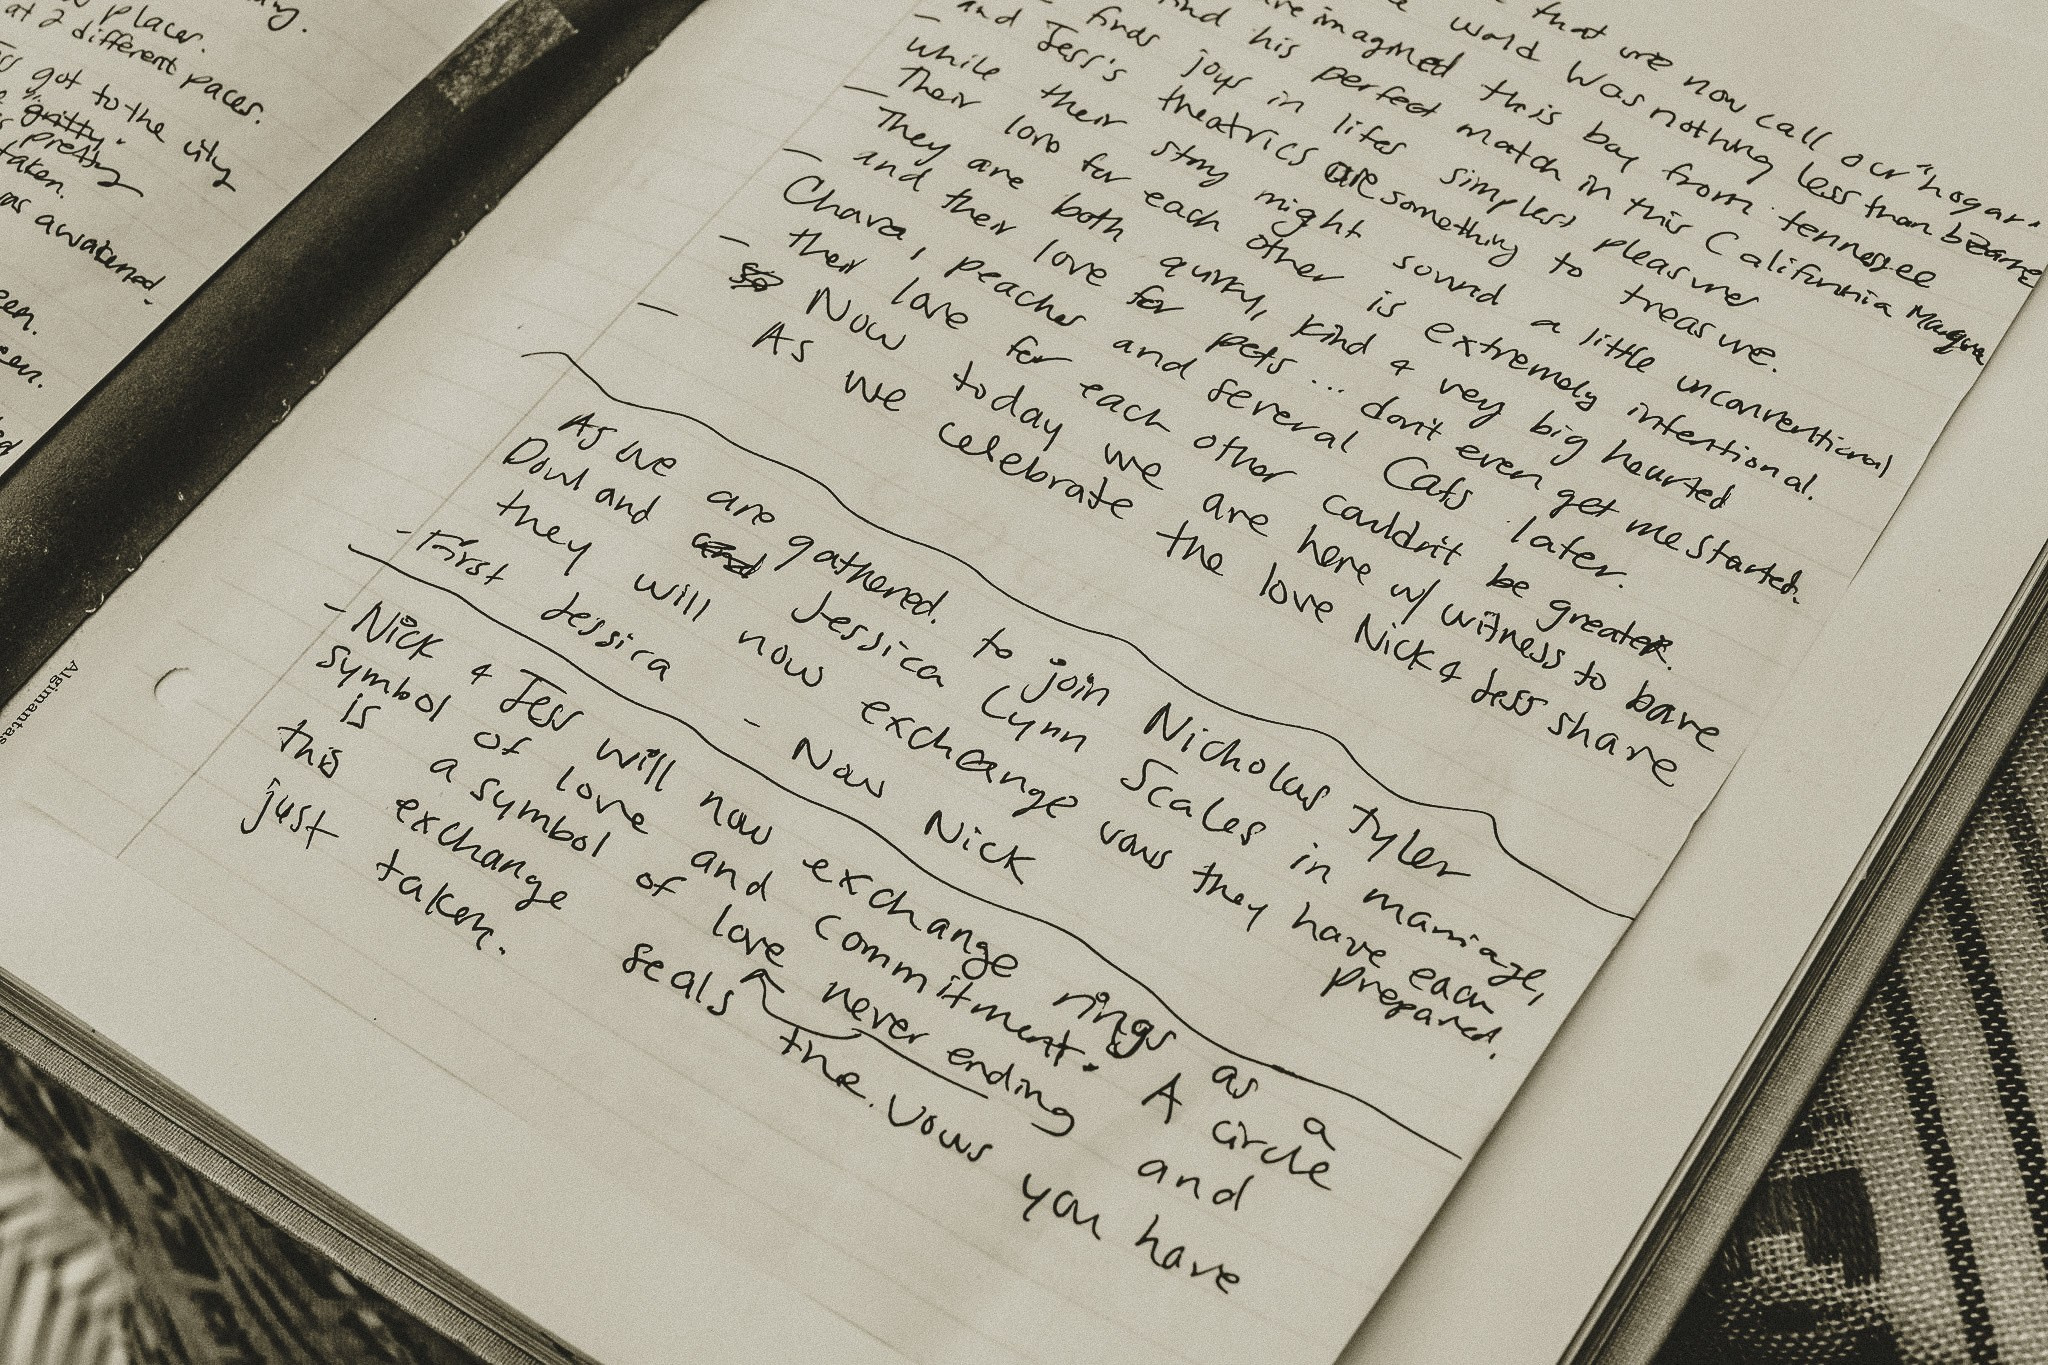 places.
at 2 different paces.
got to the city
"gritty".
pretty
taken.
was awakened.
that we now call our "hogar."
world was nothing less than bizarre
imagined this boy from tennessee
find his perfect match in this California
- finds joys in lifes simplest pleasures
and Jess's theatrics are something to treasure.
- while their story might sound a little unconventional
Their love for each other is extremely intentional.
- They are both quirky, kind & very big hearted
and their love for pets ... don't even get me started.
- Chava, peaches and several Cats later.
their love for each other couldn't be greater.
- Now today we are here w/ witness to bare
- As we celebrate the love Nick & Jess share
As we are gathered. to join Nicholas Tyler
Dowl and and Jessica Lynn Scales in marriage,
they will now exchange vows they have each
prepared.
- First Jessica - Now Nick
- Nick & Jess will now exchange rings as a
symbol of love and commitment. A circle
is a symbol of love never ending and
this exchange seals the vows you have
just taken.
Algimantas